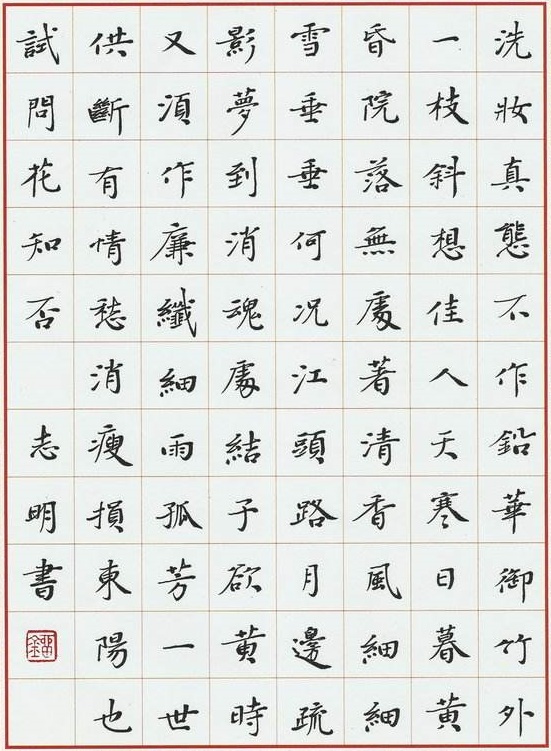 洗妝真態不作鉛華御竹外
一枝斜想佳人天寒日暮黄
昏院落無處著清香風細細
雪垂垂何况江頭路月邊疏
影夢到消魂處結子欲黄時
又須作廉纖細雨孤芳一世
供斷有情愁消瘦損東陽也
試問花知否 志明書